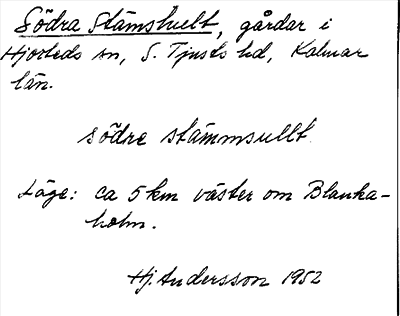 Södra Stämshult, gårdar i
Hjorteds sn, S. Tjusts hd, Kalmar
län.
södre stämmsullt
Läge: ca 5 km väster om Blanka-
holm.
Hj. Andersson 1952